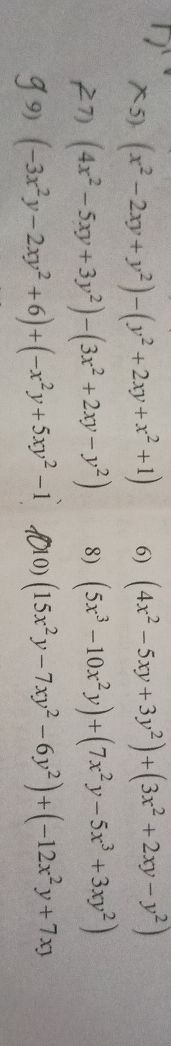 5) (x² − 2xy + y²) − (y² + 2xy + x² + 1) 6) (4x² − 5xy + 3y²) + (3x² + 2xy − y²)
7) (4x² − 5xy + 3y²) − (3x² + 2xy − y²) 8) (5x³ − 10x²y) + (7x²y − 5x³ + 3xy²)
9 9) (−3x²y − 2xy² + 6) + (−x²y + 5xy² − 1 10) (15x²y − 7xy² − 6y²) + (−12x²y + 7x